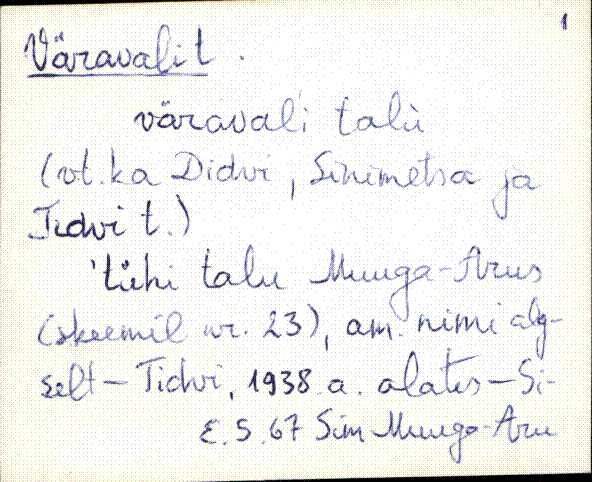 1
Väravali t.
väravali talu
(vt. ka Didvi, Sinimetsa ja
Tidvi t.)
'tühi talu Muuga-Arus
(skeemil nr. 23), am. nimi alg-
selt – Tidvi, 1938. a. alates – Si-
E. S. 67 Sim Muuga-Aru